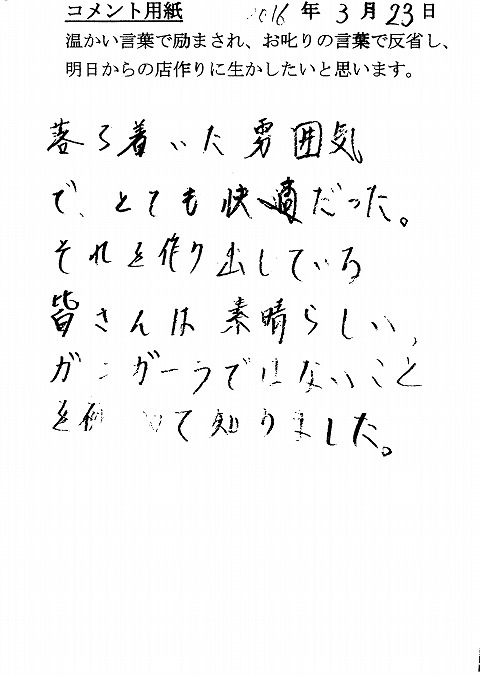 コメント用紙 2016年3月23日
温かい言葉で励まされ、お叱りの言葉で反省し、
明日からの店作りに生かしたいと思います。
落ち着いた雰囲気
で、とても快適だった。
それを作り出している
皆さんは素晴らしい、
ガンガーラではないこと
を 知りました。